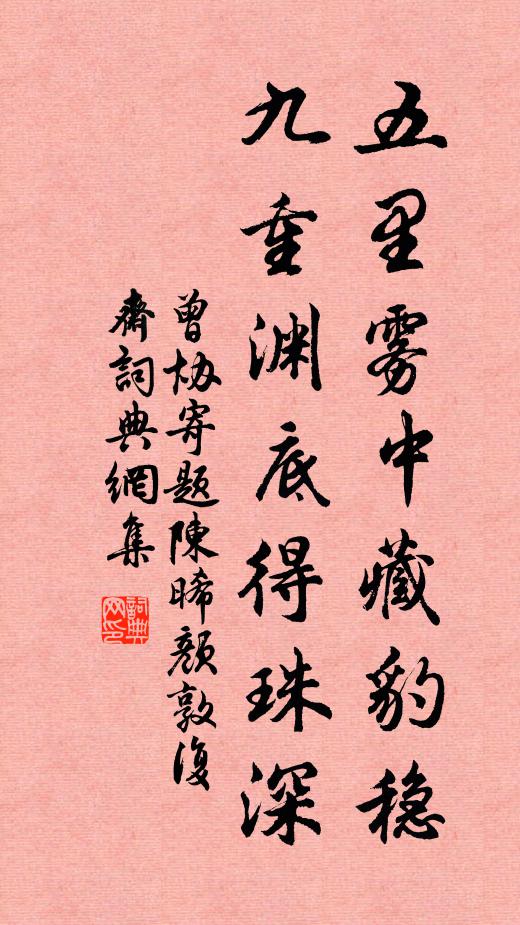 五里雾中藏豹稳
九重渊底得珠深
曾协寄题陈晞颜敦复
斋词典网集
词典
网印